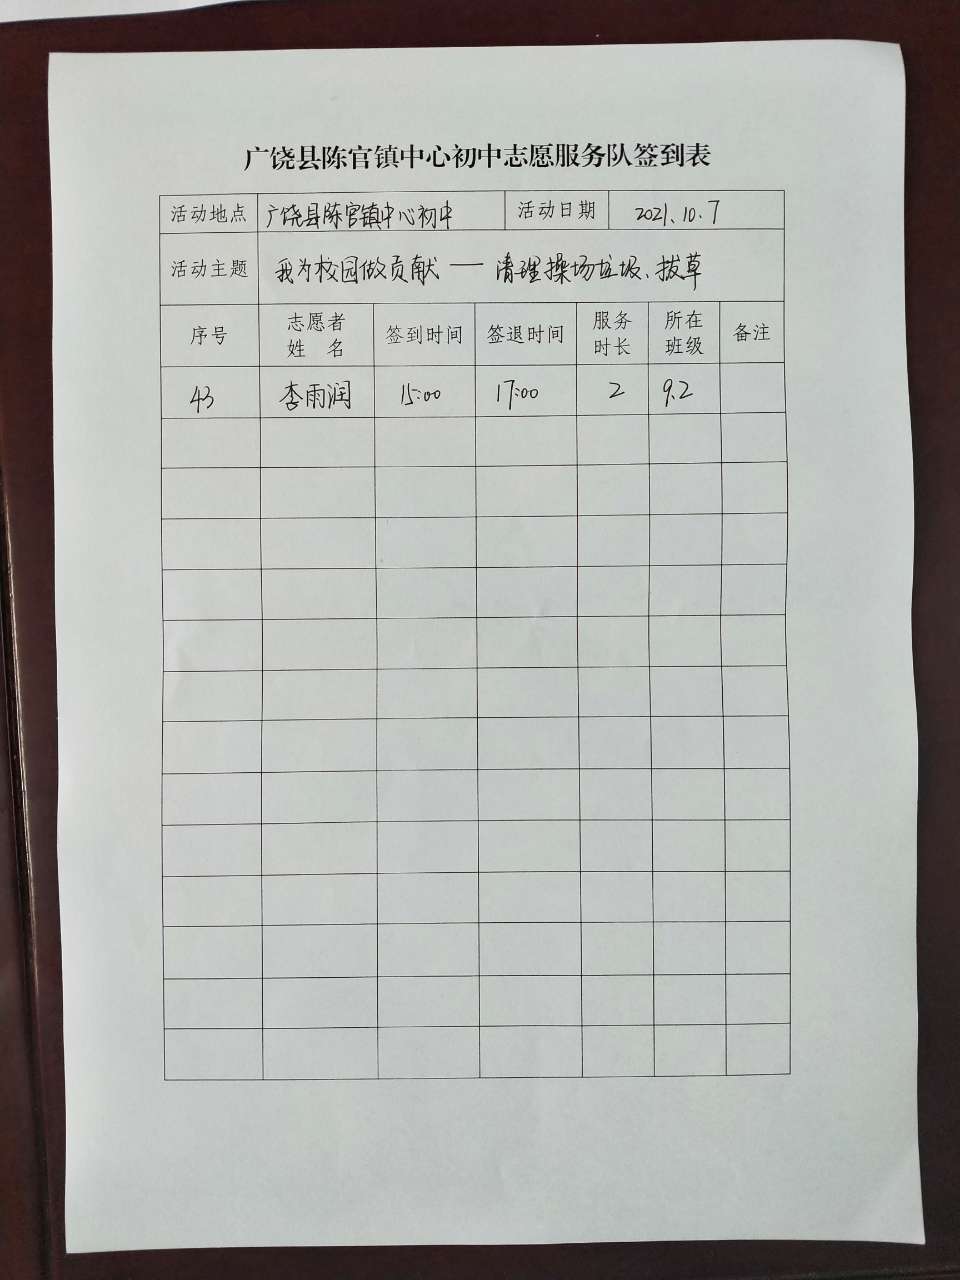 广饶县陈官镇中心初中志愿服务队签到表
活动地点 广饶县陈官镇中心初中 活动日期 2021.10.7
活动主题 我为校园做贡献——清理操场垃圾、拔草
序号 志愿者姓名 签到时间 签退时间 服务时长 所在班级 备注
43 李雨润 15:00 17:00 2 9.2